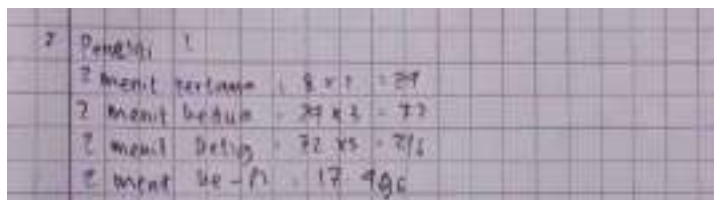 2 Penelti
2 menit pertama : 8 x 3 = 24
2 menit kedua = 24 x 3 = 72
2 menit = 72 x 3 = 216
2 menit ke-n = 17.496